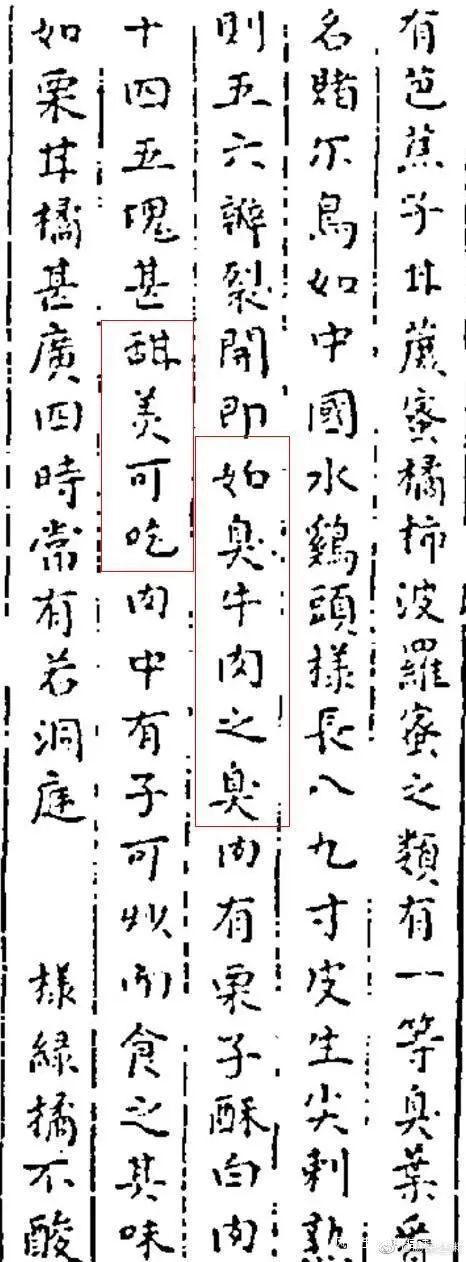 有芭蕉子甘蔗蜜橘柿波羅蜜之類有一等臭菓番
名賭尔烏如中國水鷄頭樣長八九寸皮生尖刺熟
則五六瓣裂開即如臭牛肉之臭内有栗子酥白肉
十四五塊甚甜美可吃肉中有子可炒而食之其味
如栗其橘甚廣四時常有若洞庭 樣綠橘不酸